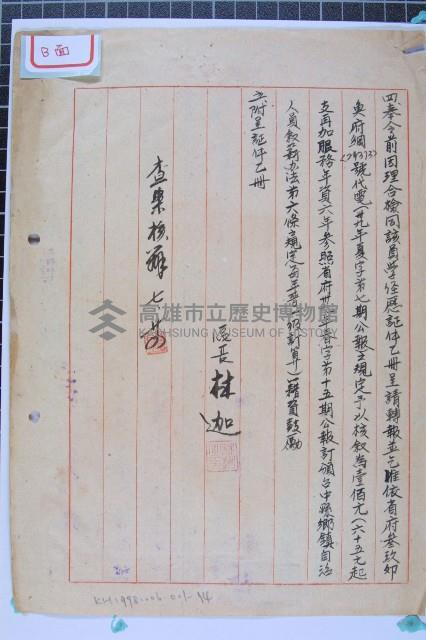 B面
四、奉令前因理合檢同該員學經歷証件乙冊呈請轉報並乞准依省府叁玖卯
奐府綱(2933)號代電(卅九年夏字第七期公報)之規定予以核敘為壹佰元(六十五元起
支再加服務年資六年參照省府卅年春字第十五期公報訂頒台中縣鄉鎮自治
人員敘薪办法第六條之規定每年晉一級計算)藉資鼓勵
五、附呈証件乙冊
區長 林迦
查案核辦 七
高雄市立歷史博物館
KAOHSIUNG MUSEUM OF HISTORY
KH1998.006.001-14